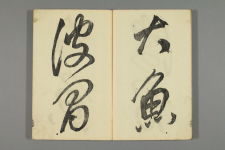 大魚
波間